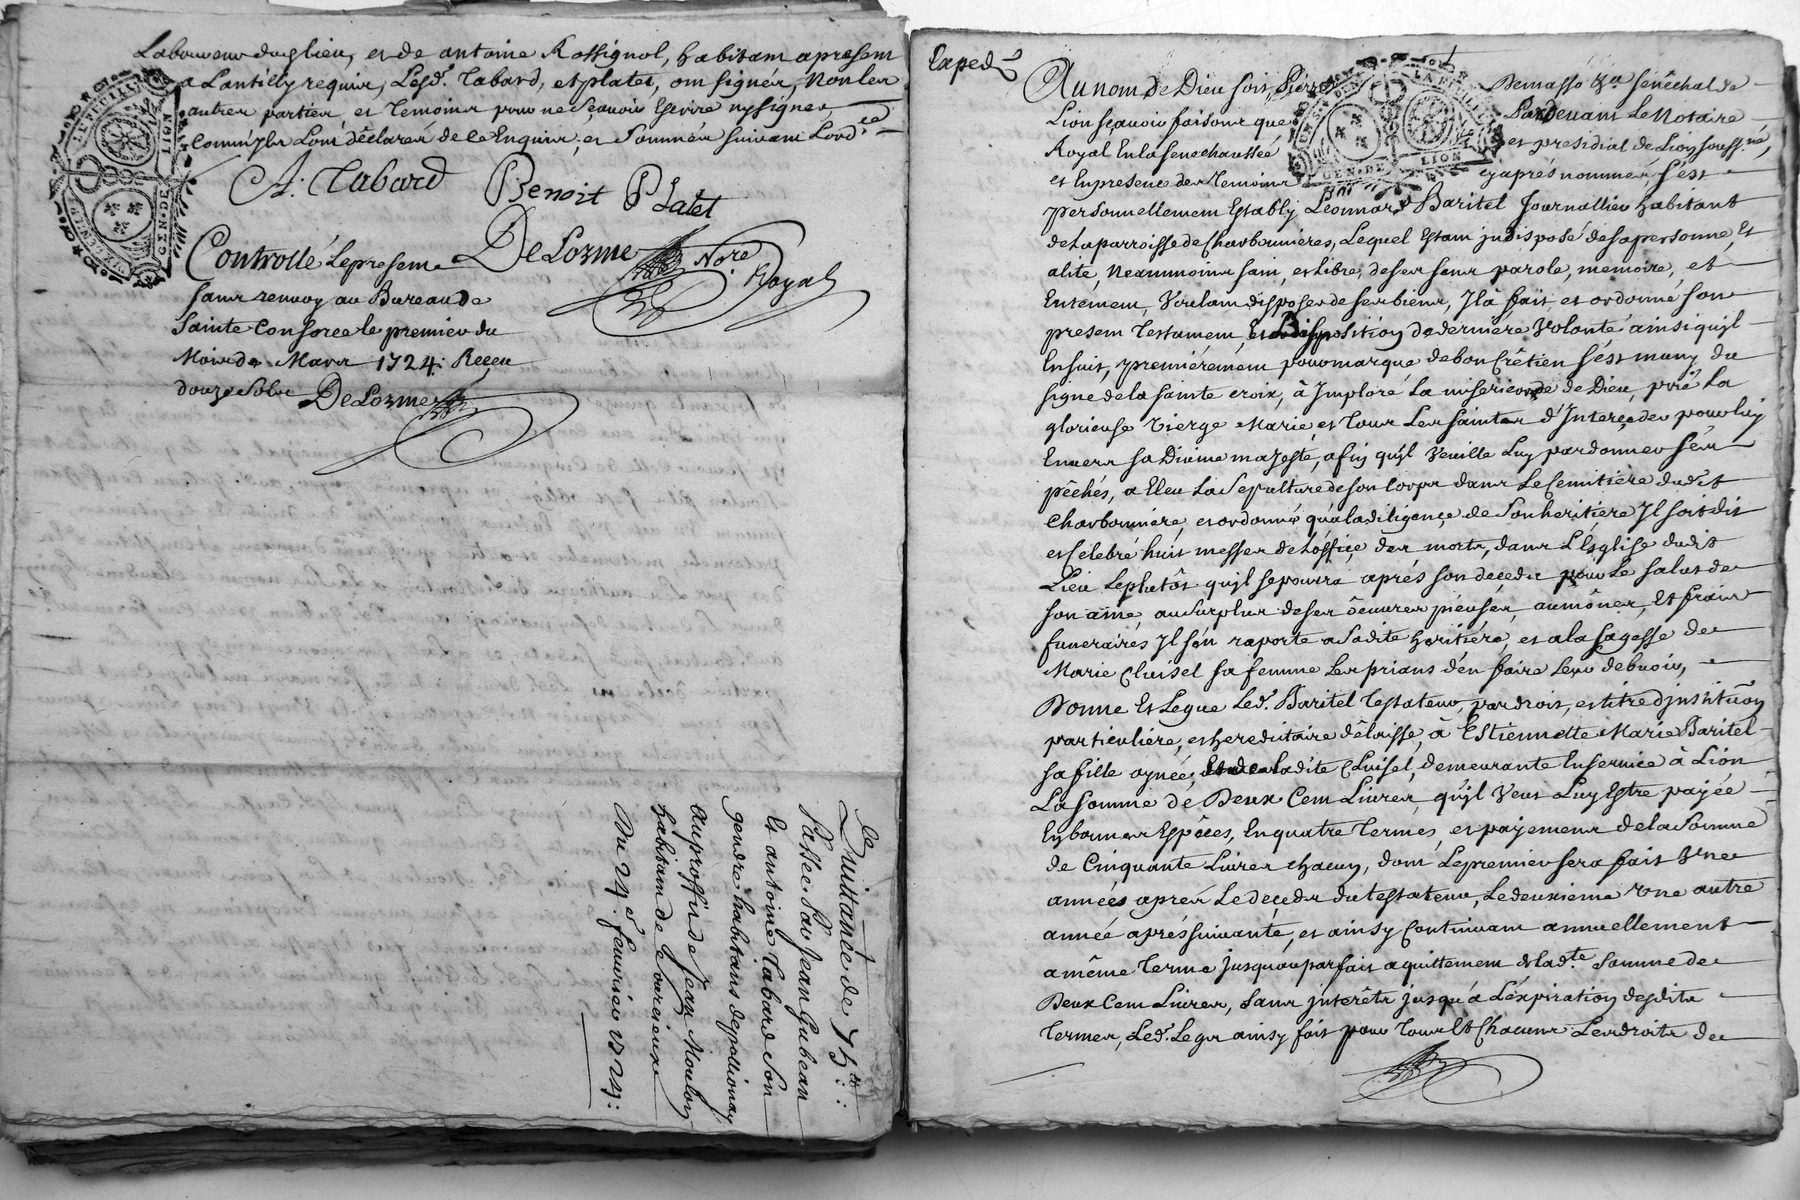 Laboureur dudlieu, et de antoine Rossignol, habitant apresent
a Lantilly requis, Lesd. Tabard, et platet, ont signés, Non les
autres parties et Temoins pour ne sçavoir Escrire ny signer
comm'ils L'ont déclarer de ce Enquis, et sommés suivant L'ord.ce
A: Tabard Benoit Platet
DeLorme No.re Royal
Controllé Le present
sans renvoy au Bureau de
Sainte Consorce le premier du
Mois de Mars 1724: Receu
douze sols DeLorme
LE FUILLE
GEN. DE LION
Quittance de 75
Passée Par Jean Gubean
Et antoine Tabard son
gendre habitans de pollionay
au proffit de Jean Moulon
habitant de Courcieux
Du 24.e fevrier 1724:
Exped.é
Au nom de Dieu soit, Pierre Demasso S.r Senêchal de
Lion sçavoir faisons que Pardevant Le Notaire
Royal En la Senechaussée et presidial de Lion soussigné,
et En presence des Temoins cy aprés nommés, s'est
personnellement Estably Leonnard Baritel Journallier habitant
de La parroisse de Charbonnières, Lequel Estant jndisposé de sa personne, Et
alité, Neammoins sain, et Libre, de ses sens parole, memoire, et
Entément, Voulant disposer de ses biens, Il à fait et ordonné son
present Testament, Et Disposition de derniere Volonté ainsi qu'il
Ensuit, premièrement pour marque de bon Crêtien s'est muny du
signe de la sainte croix, à Imploré La misericorde de Dieu, prié La
glorieuse Vierge Marie, et Tous Les saints d'Interçeder pour luy
Envers sa Divine majesté, afin qu'il Veuille Luy pardonner sés
pêchés, a Eleu La sepulture de son corps dans Le Cemitière dudit
Charbonnière, et ordonné qu'a la diligençe de Son heritière Il soit dit
et Celebré huit messes de L'offiçe des morts, dans L'Esglise dudit
Lieu Le plutôt qu'il se pourra aprés son deçedu pour Le salut de
son ame, au surplus de ses oeuvres pieuses, aumônes, Et frais
funeraires Il s'én raporte a Sadite heritière, et a la sagesse de
Marie Cluisel sa femme Les prians d'en faire Leur debvoir,
Donne Et Legue Led. Baritel Testateur, par droit, et titre d'jnstitution
particulière, et hereditaire délaissé, à Estiennette Marie Baritel
sa fille aynée, Et de Ladite Cluisel, demeurante En service à Lion
La somme de Deux Cent Livres, qu'il Veut Luy Estre payée
En bonnes Espêces, En quatre Termes, et payement de la Somme
de Cinquante Livres chacun, dont Le premier sera fait Vne
année aprés Le deçeds du testateur, Le deuxieme Vne autre
année aprés suivante, et ainsy Continuant annuellement
a même Terme jusqu'au parfait aquittement de lad.te Somme de
Deux Cent Livres, sans jnterêts jusqu'à L'éxpiration desdits
Termes, Led. Legs ainsy fait pour Tous Et Chacuns Les droits de